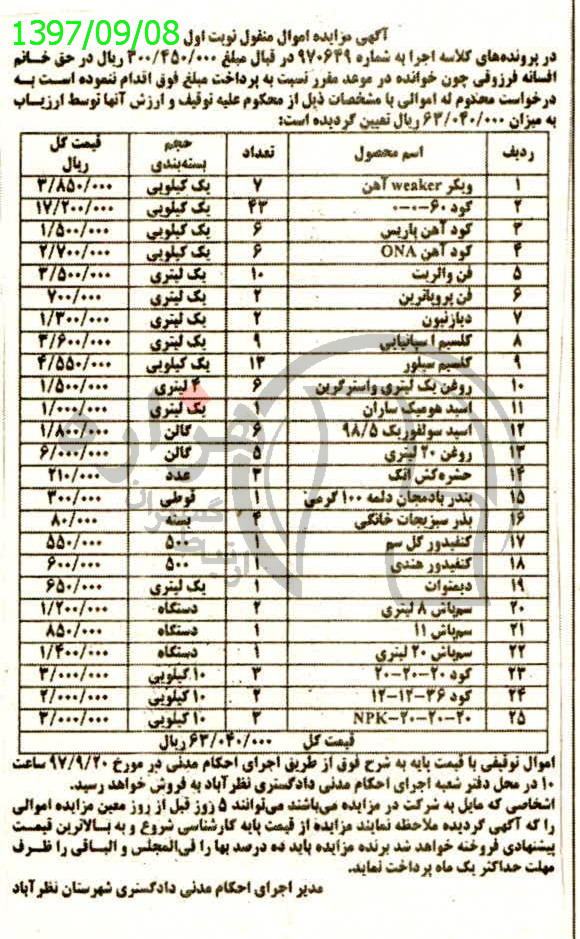 1397/09/08
آگهی مزایده اموال منقول نوبت اول
در پرونده‌های کلاسه اجرا به شماره ۹۷۰۶۴۹ در قبال مبلغ ۳۰۰/۴۵۰/۰۰۰ ریال در حق خانم
افسانه فرزوقی چون خوانده در موعد مقرر نسبت به پرداخت مبلغ فوق اقدام ننموده است به
درخواست محکوم له اموالی با مشخصات ذیل از محکوم علیه توقیف و ارزش آنها توسط ارزیاب
به میزان ۶۳/۰۴۰/۰۰۰ ریال تعیین گردیده است:
ردیف اسم محصول تعداد حجم بسته‌بندی قیمت کل ریال
۱ ویکر weaker آهن ۷ یک کیلویی ۳/۸۵۰/۰۰۰
۲ کود ۶۰-۰-۰ ۴۳ یک کیلویی ۱۷/۲۰۰/۰۰۰
۳ کود آهن پاریس ۶ یک کیلویی ۱/۵۰۰/۰۰۰
۴ کود آهن ONA ۶ یک کیلویی ۲/۷۰۰/۰۰۰
۵ فن والریت ۱۰ یک لیتری ۳/۵۰۰/۰۰۰
۶ فن پروپاترین ۲ یک لیتری ۷۰۰/۰۰۰
۷ دیازنیون ۲ یک لیتری ۱/۳۰۰/۰۰۰
۸ کلسیم اسپانیایی ۹ یک لیتری ۳/۶۰۰/۰۰۰
۹ کلسیم سیلور ۱۳ یک کیلویی ۴/۵۵۰/۰۰۰
۱۰ روغن یک لیتری واسترگرین ۶ ۴ لیتری ۱/۵۰۰/۰۰۰
۱۱ اسید هومیک ساران ۱ یک لیتری ۱/۰۰۰/۰۰۰
۱۲ اسید سولفوریک ۹۸/۵ ۶ گالن ۱/۸۰۰/۰۰۰
۱۳ روغن ۲۰ لیتری ۵ گالن ۶/۰۰۰/۰۰۰
۱۴ حشره‌کش اتک ۳ عدد ۲۱۰/۰۰۰
۱۵ بندر بادمجان دلمه ۱۰۰ گرمی ۱ قوطی ۳۰۰/۰۰۰
۱۶ بذر سبزیجات خانگی ۴ بسته ۸۰/۰۰۰
۱۷ کنفیدور گل سم ۱ ۵۰۰ ۵۵۰/۰۰۰
۱۸ کنفیدور هندی ۱ ۵۰۰ ۶۰۰/۰۰۰
۱۹ دیمتوات ۱ یک لیتری ۶۵۰/۰۰۰
۲۰ سم‌پاش ۸ لیتری ۲ دستگاه ۱/۲۰۰/۰۰۰
۲۱ سم‌پاش ۱۱ ۱ دستگاه ۸۵۰/۰۰۰
۲۲ سم‌پاش ۲۰ لیتری ۱ دستگاه ۱/۴۰۰/۰۰۰
۲۳ کود ۲۰-۲۰-۲۰ ۳ ۱۰ کیلویی ۳/۰۰۰/۰۰۰
۲۴ کود ۳۶-۱۲-۱۲ ۲ ۱۰ کیلویی ۲/۰۰۰/۰۰۰
۲۵ NPK-۲۰-۲۰-۲۰ ۳ ۱۰ کیلویی ۳/۰۰۰/۰۰۰
قیمت کل ۶۳/۰۴۰/۰۰۰ ریال
اموال توقیفی با قیمت پایه به شرح فوق از طریق اجرای احکام مدنی در مورخ ۹۷/۹/۲۰ ساعت
۱۰ در محل دفتر شعبه اجرای احکام مدنی دادگستری نظرآباد به فروش خواهد رسید.
اشخاصی که مایل به شرکت در مزایده می‌باشند می‌توانند ۵ روز قبل از روز معین مزایده اموالی
را که آگهی گردیده ملاحظه نمایند مزایده از قیمت پایه کارشناسی شروع و به بالاترین قیمت
پیشنهادی فروخته خواهد شد برنده مزایده باید ده درصد بها را فی‌المجلس و الباقی را ظرف
مهلت حداکثر یک ماه پرداخت نماید.
مدیر اجرای احکام مدنی دادگستری شهرستان نظرآباد